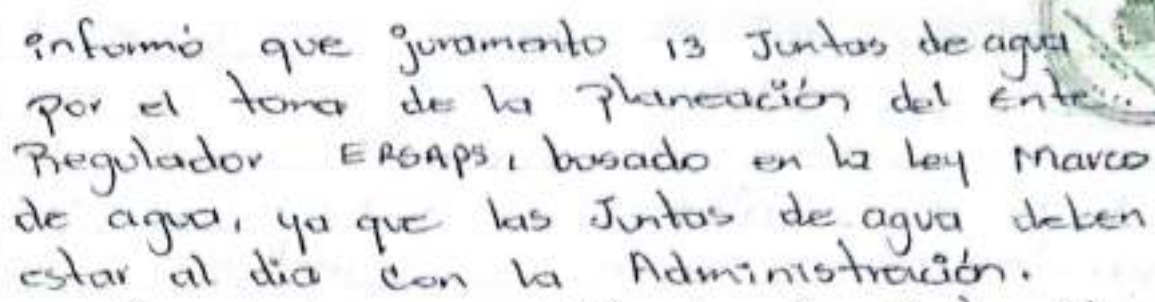 informó que juramento 13 Juntas de agua
por el toma de la Planeación del Ente
Regulador ERSAPS, basado en la ley Marco
de agua, ya que las Juntas de agua deben
estar al dia con la Administración.